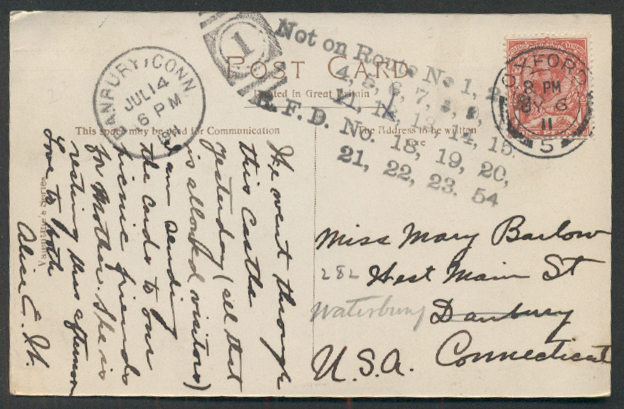 DANBURY, CONN
JUL 14
6 PM
1
Not on Route No 1, 2,
4, 5, 6, 7,
21,
14, 15.
R. F. D. No. 18, 19, 20,
21, 22, 23. 54
OXFORD
8 PM
JY 6
11
S
POST CARD
Printed in Great Britain
This space may be used for Communication
The Address to be written
We went through
this castle
yesterday (all that
is allowed visitors)
I am sending
the cards to our
picnic friends
for Mother. She is
resting this afternoon
Love to both
Alice C. H.
Miss Mary Barlow
282 West Main St
Waterbury Danbury
U.S.A. Connecticut